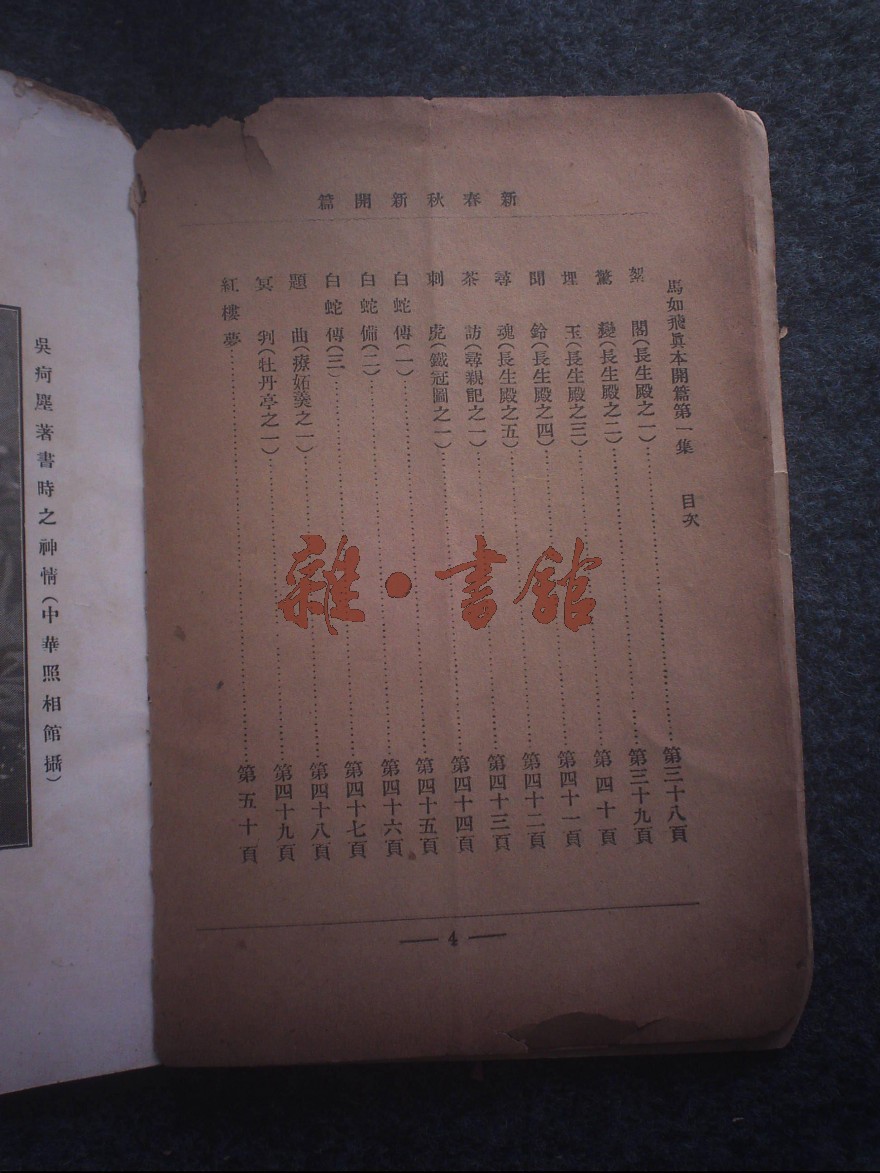 新春秋新開篇
馬如飛眞本開篇第一集 目次
絮閣(長生殿之一)⋯⋯第三十八頁
驚變(長生殿之二)⋯⋯第三十九頁
埋玉(長生殿之三)⋯⋯第四十頁
聞鈴(長生殿之四)⋯⋯第四十一頁
尋魂(長生殿之五)⋯⋯第四十二頁
茶訪(尋親記之一)⋯⋯第四十三頁
刺虎(鐵冠圖之一)⋯⋯第四十四頁
白蛇傳(一)⋯⋯第四十五頁
白蛇備(二)⋯⋯第四十六頁
白蛇傳(三)⋯⋯第四十七頁
題曲(療妬羹之一)⋯⋯第四十八頁
冥判(牡丹亭之一)⋯⋯第四十九頁
紅樓夢⋯⋯第五十頁
— 4 —
吳疴塵著書時之神情(中華照相館攝)
雜·書館